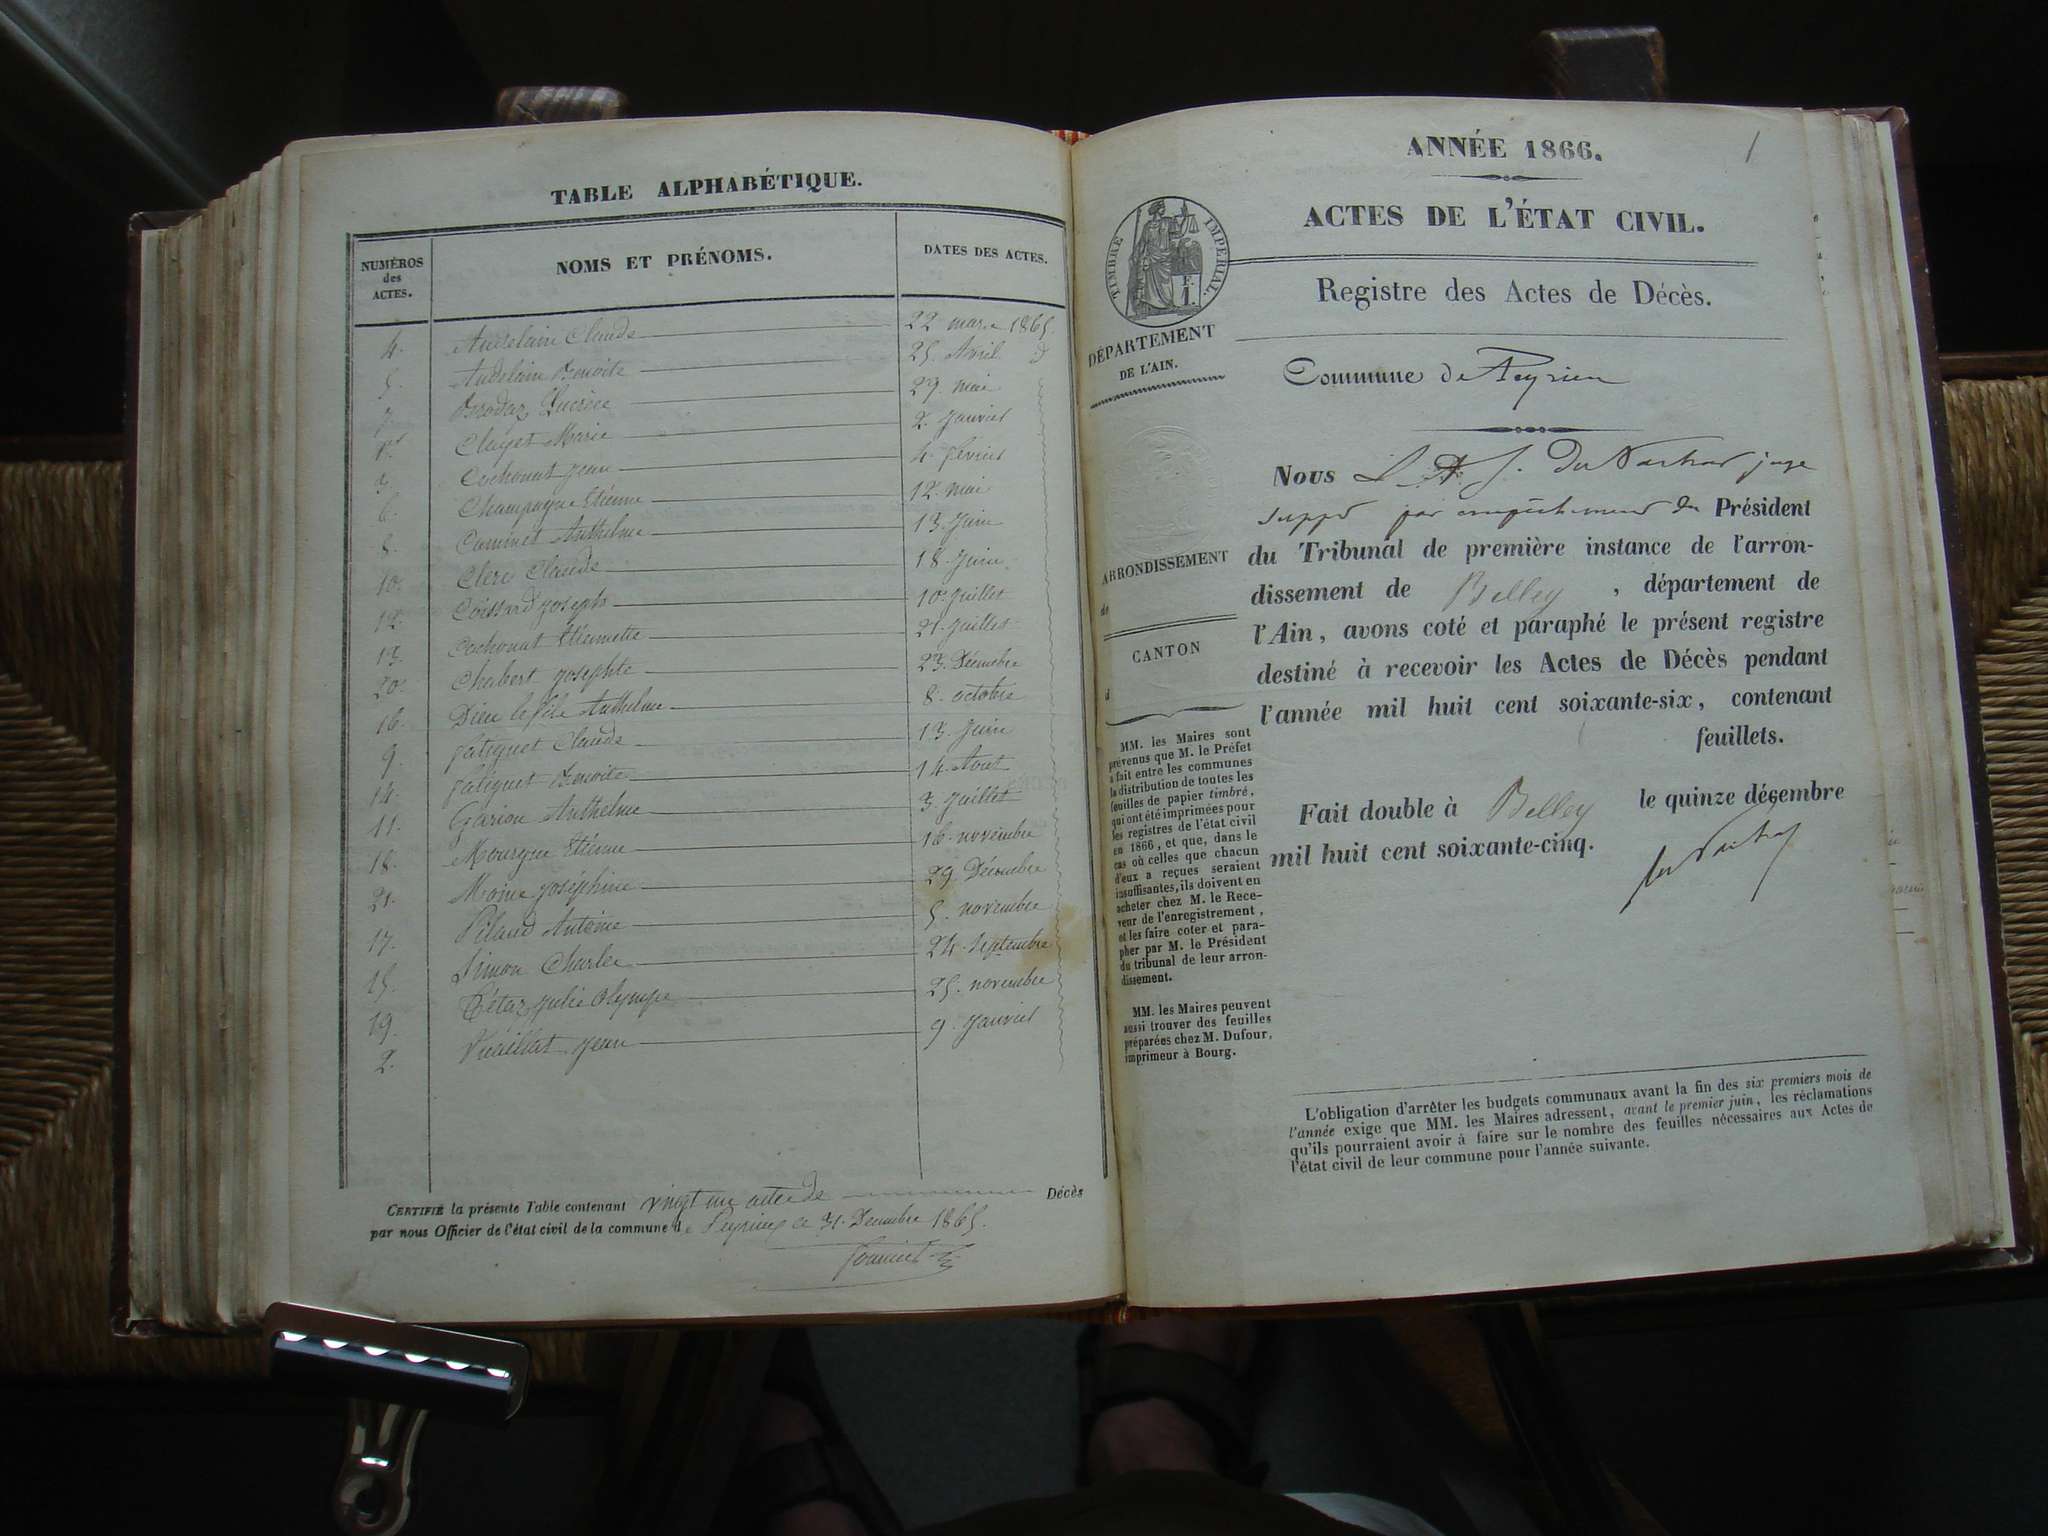 TABLE ALPHABÉTIQUE.
NUMÉROS des ACTES. NOMS ET PRÉNOMS. DATES DES ACTES.
4. Audelain Claude 22 mars 1865.
5. Audelain Benoite 25. Avril d°
7. Brodaz Lucrèce 29. mai
1er Clayet Marie 2. Janvier
3. Cochonat Jean 4. février
6. Champagne Etienne 12. mai
8. Cuminet Anthelme 13. Juin
10. Clerc Claude 18. Juin
12. Coissard Joseph 10. Juillet
13. Cochonat Etiennette 21. Juillet
20. Chabert Josephte 23. Décembre
16. Dieu le file Anthelme 8. octobre
9. Claude 13. Juin
14. Benoite 14. Aout
11. Garion Anthelme 3. Juillet
18. Mourgue Etienne 16. novembre
21. Moine Joséphine 29. Décembre
17. Pilaud Antoine 5. novembre
15. Simon Charles 24. Septembre
19. Tétaz Julie Olympe 25. novembre
2. Jean 9. Janvier
CERTIFIÉ la présente Table contenant vingt un actes de Décès
par nous Officier de l'état civil de la commune de Peyrieu ce 31. Décembre 1865.
1
ANNÉE 1866.
ACTES DE L'ÉTAT CIVIL.
Registre des Actes de Décès.
TIMBRE IMPÉRIAL.
DÉPARTEMENT
DE L'AIN.
Commune de Peyrieu
ARRONDISSEMENT
de
CANTON
d
MM. les Maires sont
prévenus que M. le Préfet
a fait entre les communes
la distribution de toutes les
feuilles de papier timbré,
qui ont été imprimées pour
les registres de l'état civil
en 1866, et que, dans le
cas où celles que chacun
d'eux a reçues seraient
insuffisantes, ils doivent en
acheter chez M. le Rece-
veur de l'enregistrement,
et les faire coter et para-
pher par M. le Président
du tribunal de leur arron-
dissement.
MM. les Maires peuvent
aussi trouver des feuilles
préparées chez M. Dufour,
imprimeur à Bourg.
Nous juge
suppt par empêchement du Président
du Tribunal de première instance de l'arron-
dissement de Belley, département de
l'Ain, avons coté et paraphé le présent registre
destiné à recevoir les Actes de Décès pendant
l'année mil huit cent soixante-six, contenant
feuillets.
Fait double à Belley le quinze décembre
mil huit cent soixante-cinq.
L'obligation d'arrêter les budgets communaux avant la fin des six premiers mois de
l'année exige que MM. les Maires adressent, avant le premier juin, les réclamations
qu'ils pourraient avoir à faire sur le nombre des feuilles nécessaires aux Actes de
l'état civil de leur commune pour l'année suivante.